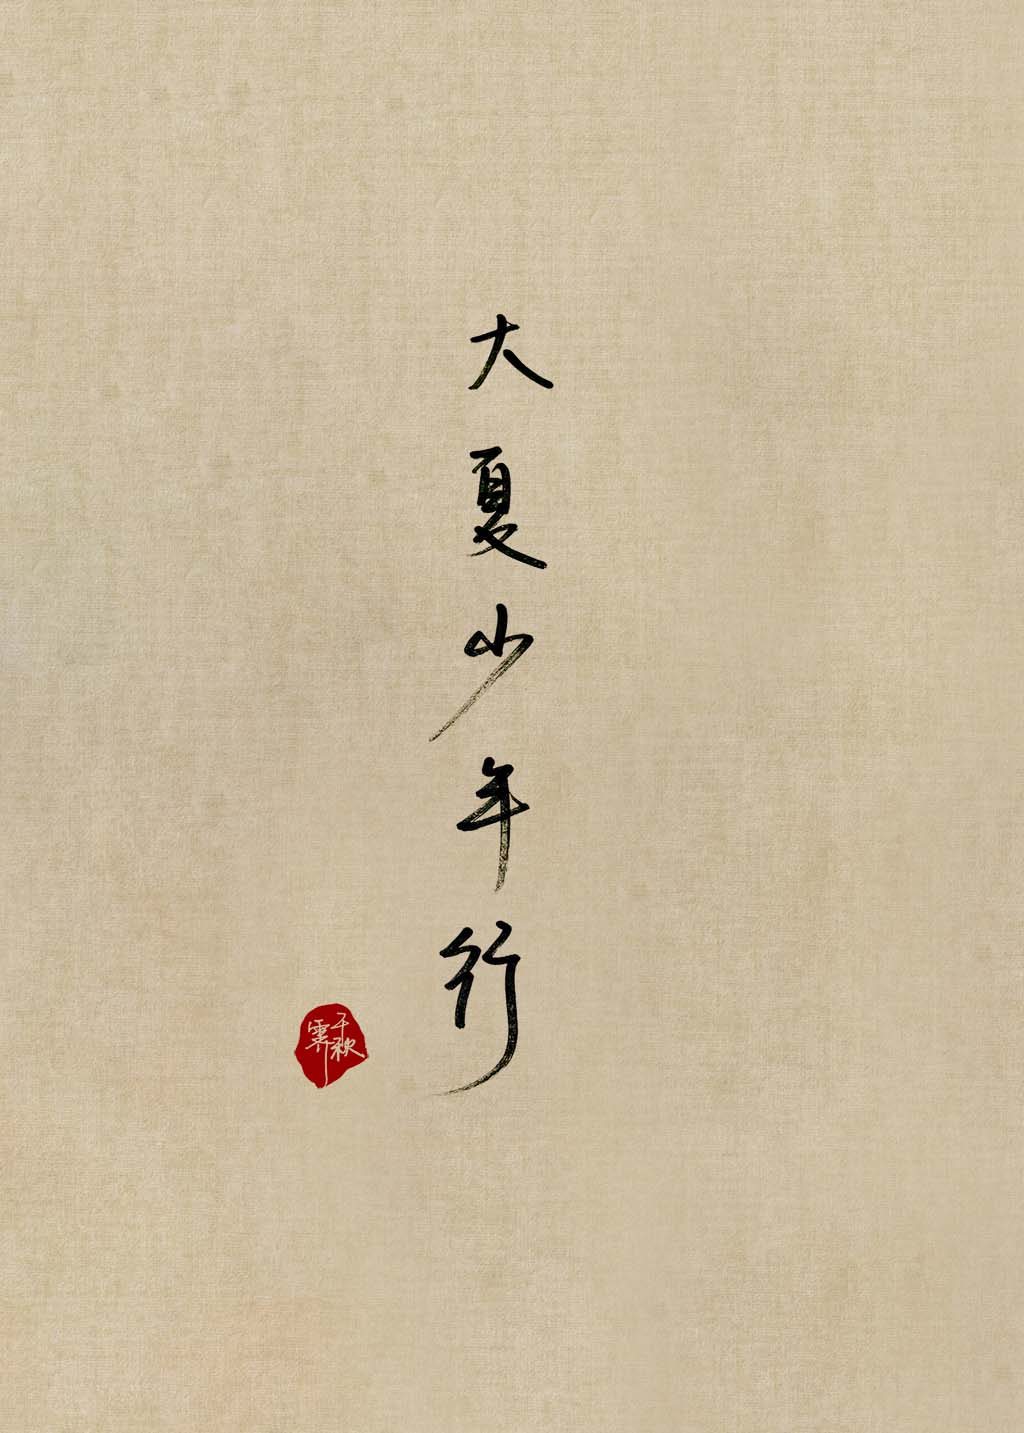 大夏少年行
千秋
霁